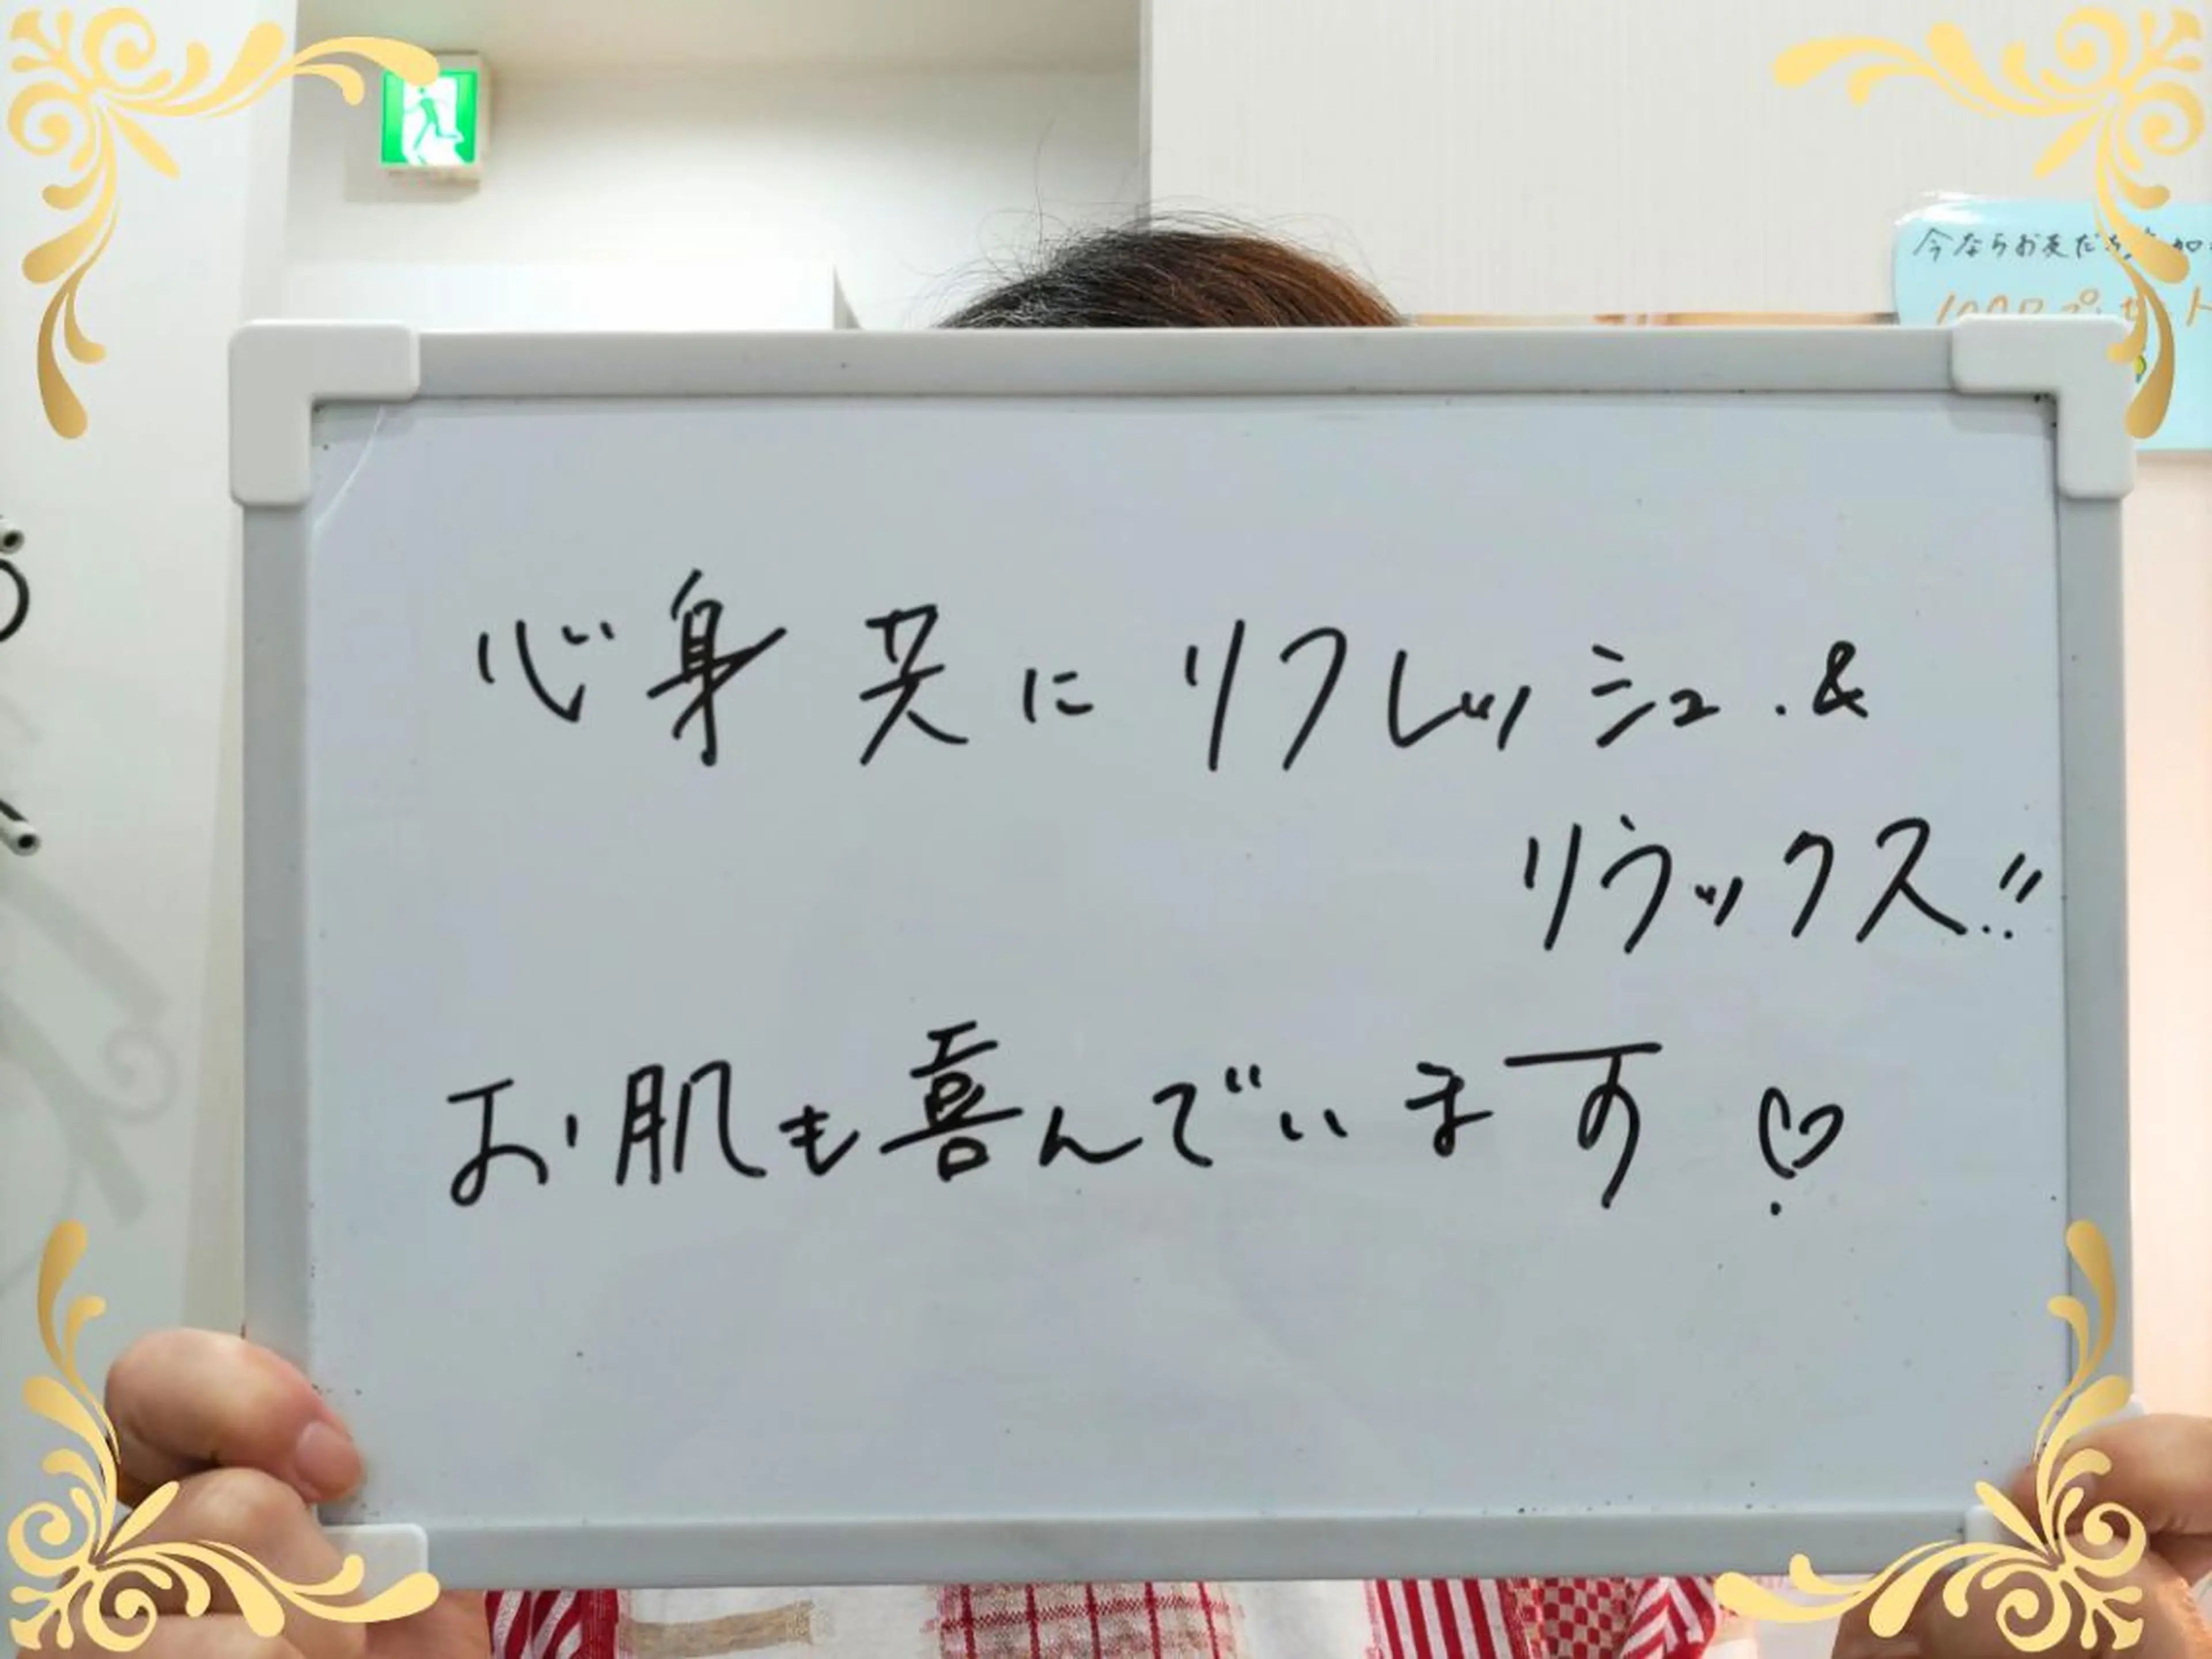 心身共にリフレッシュ.&
リラックス!!
お肌も喜んでいます♡
今ならお友だち